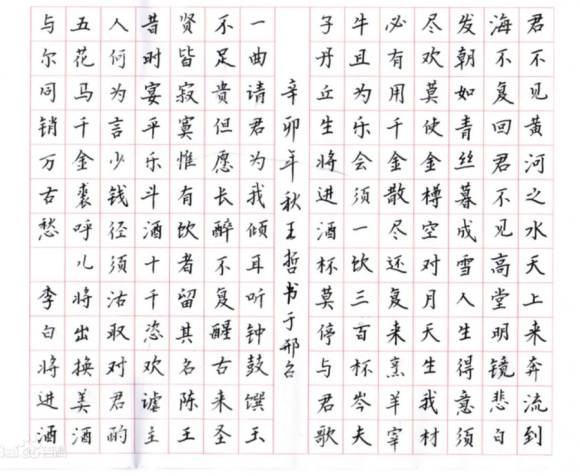 君不见黄河之水天上来奔流到
海不复回君不见高堂明镜悲白
发朝如青丝暮成雪人生得意须
尽欢莫使金樽空对月天生我材
必有用千金散尽还复来烹羊宰
牛且为乐会须一饮三百杯岑夫
子丹丘生将进酒杯莫停与君歌
辛卯年秋王哲书于邢台
一曲请君为我倾耳听钟鼓馔玉
不足贵但愿长醉不复醒古来圣
贤皆寂寞惟有饮者留其名陈王
昔时宴平乐斗酒十千恣欢谑主
人何为言少钱径须沽取对君酌
五花马千金裘呼儿将出换美酒
与尔同销万古愁 李白将进酒